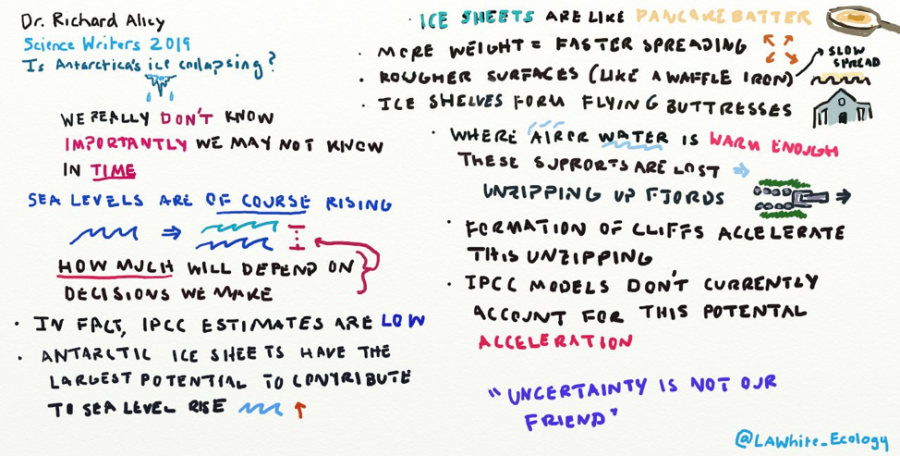 Dr. Richard Alley
Science Writers 2019
Is Antarctica's ice collapsing?
WE REALLY DON'T KNOW
IMPORTANTLY WE MAY NOT KNOW
IN TIME
SEA LEVELS ARE OF COURSE RISING
HOW MUCH WILL DEPEND ON
DECISIONS WE MAKE
• IN FACT, IPCC ESTIMATES ARE LOW
• ANTARCTIC ICE SHEETS HAVE THE
LARGEST POTENTIAL TO CONTRIBUTE
TO SEA LEVEL RISE
• ICE SHEETS ARE LIKE PANCAKE BATTER
• MORE WEIGHT = FASTER SPREADING
• ROUGHER SURFACES (LIKE A WAFFLE IRON)
SLOW
SPREAD
• ICE SHELVES FORM FLYING BUTTRESSES
• WHERE AIR OR WATER IS WARM ENOUGH
THESE SUPPORTS ARE LOST
UNZIPPING UP FJORDS
• FORMATION OF CLIFFS ACCELERATE
THIS UNZIPPING
• IPCC MODELS DON'T CURRENTLY
ACCOUNT FOR THIS POTENTIAL
ACCELERATION
"UNCERTAINTY IS NOT OUR
FRIEND"
@LAWhite_Ecology